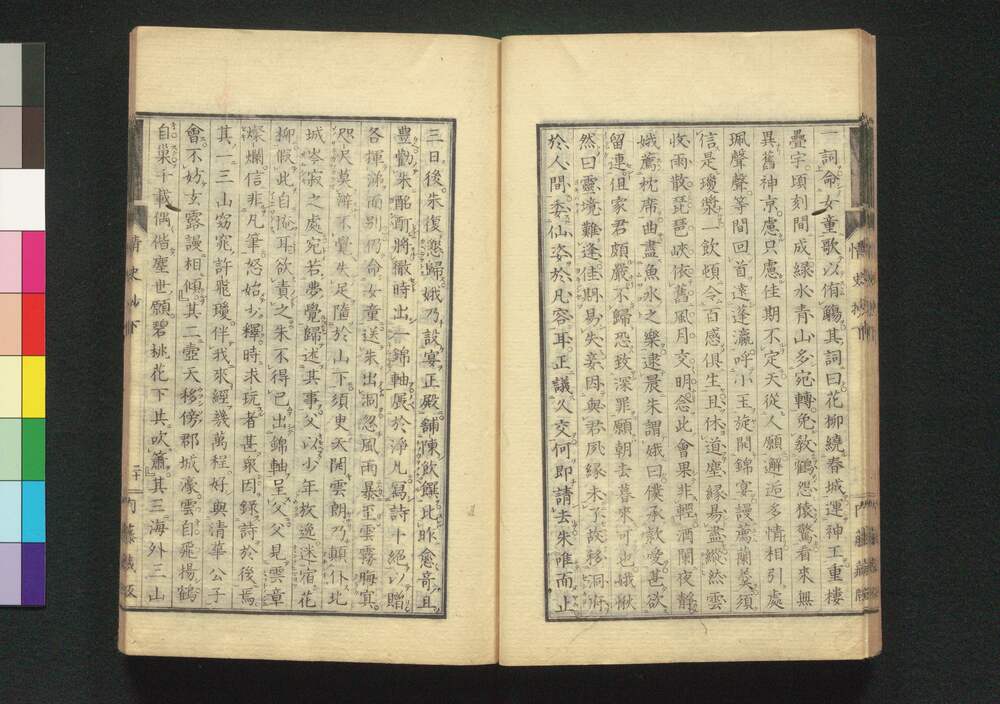 一詞命女童歌以侑觴其詞曰花柳繞春城運神工重樓
疊宇頃刻間成綠水青山多宛轉免教鶴怨猿驚看來無
異舊神京慮只慮佳期不定天從人願邂逅多情相引處
珮聲聲等間回首遠蓬瀛呼小玉旋開錦宴謾薦蘭羹須
信是瓊漿一飲頓令百感俱生且休道塵緣易盡縱然雲
收雨散琵琶峽依舊風月交明念此會果非輕酒闌夜靜
娥薦枕席曲盡魚水之樂逮晨朱謂娥曰僕承歡愛甚欲
留連但家君頗嚴不歸恐致深罪願朝去暮來可也娥愀
然曰靈境難逢佳期易失妾因與君夙緣未了故移洞府
於人間委仙姿於凡容耳正議久交何即請去朱唯而止
三日後朱復懇歸娥乃設宴正殿鋪陳飲饌比昨愈奇且
豊勸朱酩酊將撤時出一錦軸展於淨几寫詩十絕以贈
各揮涕而別仍命女童送朱出洞忽風雨暴至雲霧晦真
咫尺莫辨不覺失足隨於山下須臾天開雲朗乃顛仆北
城岑寂之處宛若夢覺歸述其事父以少年放逸迷宿花
柳假此自掩耳欲責之朱不得已出錦軸呈父父見雲章
燦爛信非凡筆怒始少釋時求玩者甚衆因錄詩於後焉
其一三山窈窕許飛瓊伴我來經幾萬程好與清華公子
會不妨玄露謾相傾其二壺天移傍郡城濠雲自飛楊鶴
自巢千載偶偕塵世願碧桃花下共吹簫其三海外三山
情史抄下
二十